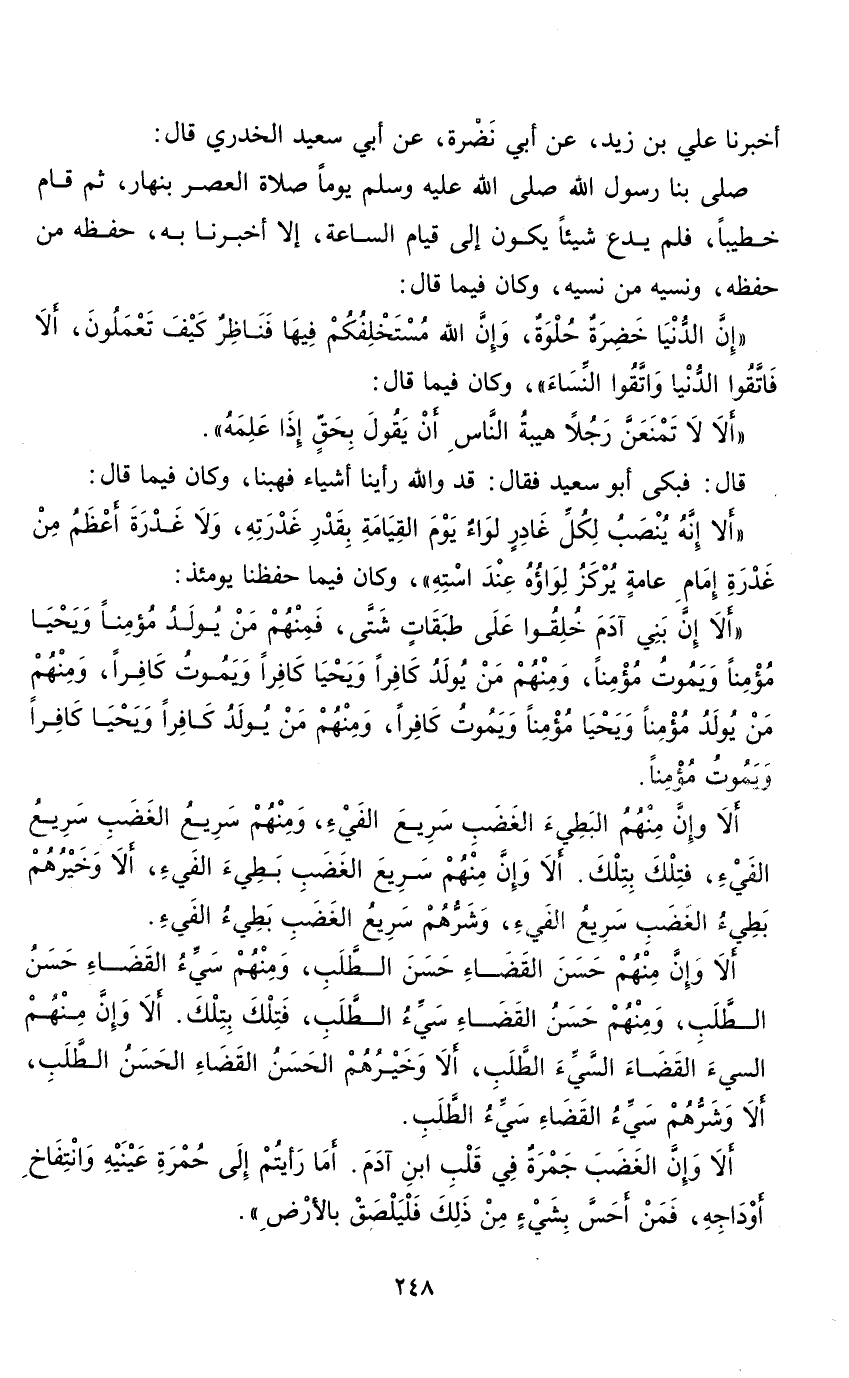 أخبرنا علي بن زيد، عن أبي نَضْرة، عن أبي سعيد الخدري قال:
صلى بنا رسول الله صلى الله عليه وسلم يوماً صلاة العصر بنهار، ثم قام
خطيباً، فلم يدع شيئاً يكون إلى قيام الساعة، إلا أخبرنا به، حفظه من
حفظه، ونسيه من نسيه، وكان فيما قال:
«إِنَّ الدُّنْيَا خَضِرَةٌ حُلْوَةٌ، وَإِنَّ الله مُسْتَخْلِفُكُمْ فِيهَا فَنَاظِرٌ كَيْفَ تَعْمَلُونَ، أَلَا
فَاتَّقُوا الدُّنْيا وَاتَّقُوا النِّسَاءَ»، وكان فيما قال:
«أَلَا لَا تَمْنَعَنَّ رَجُلًا هيبةُ النَّاسِ أَنْ يَقُولَ بِحَقٍّ إِذَا عَلِمَهُ».
قال: فبكى أبو سعيد فقال: قد والله رأينا أشياء فهبنا، وكان فيما قال:
«أَلا إِنَّهُ يُنْصَبُ لِكُلِّ غَادِرٍ لِوَاءٌ يَوْمَ القِيَامَةِ بِقَدْرِ غَدْرَتِهِ، وَلَا غَدْرَةَ أَعْظَمُ مِنْ
غَدْرَةِ إِمَامِ عامةٍ يُرْكَزُ لِوَاؤُهُ عِنْدَ اسْتِهِ»، وكان فيما حفظنا يومئذ:
«أَلَا إِنَّ بَنِي آدَمَ خُلِقُوا عَلَى طَبَقَاتٍ شَتَّى، فَمِنْهُمْ مَنْ يُولَدُ مُؤمِناً وَيَحْيَا
مُؤْمِناً وَيَمُوتُ مُؤْمِناً، وَمِنْهُمْ مَنْ يُولَدُ كَافِراً وَيَحْيَا كَافِراً وَيَمُوتُ كَافِراً، وَمِنْهُمْ
مَنْ يُولَدُ مُؤْمِناً وَيَحْيَا مُؤْمِناً وَيَمُوتُ كَافِراً، وَمِنْهُمْ مَنْ يُولَدُ كَافِراً وَيَحْيَا كَافِراً
وَيَمُوتُ مُؤْمِناً.
أَلَا وإنَّ مِنْهُمُ البَطِيءَ الغَضَبِ سَرِيعَ الفَيْءِ، وَمِنْهُمْ سَرِيعُ الغَضَبِ سَرِيعُ
الفَيْءِ، فتِلْكَ بِتِلْكَ. أَلَا وَإِنَّ مِنْهُمْ سَرِيعَ الغَضَبِ بَطِيءَ الفَيءِ، أَلَا وَخَيْرُهُمْ
بَطِيءُ الغَضَبِ سَرِيعُ الفَيءِ، وَشَرُّهُمْ سَرِيعُ الغَضَبِ بَطِيءُ الفَيءِ.
أَلَا وَإِنَّ مِنْهُمْ حَسَنَ القَضَاءِ حَسَنَ الطَّلَبِ، وَمِنْهُمْ سَيِّءُ القَضَاءِ حَسَنُ
الطَّلَبِ، وَمِنْهُمْ حَسَنُ القَضَاءِ سَيِّءُ الطَّلَبِ، فَتِلْكَ بِتِلْكَ. أَلَا وَإِنَّ مِنْهُمْ
السيءَ القَضَاءَ السَّيِّءَ الطَّلَبِ، أَلَا وَخَيْرُهُمْ الحَسَنُ القَضَاءِ الحَسَنُ الطَّلَبِ،
أَلَا وَشَرُّهُمْ سَيِّءُ القَضَاءِ سَيِّءُ الطَّلَبِ.
أَلَا وَإِنَّ الغَضَبَ جَمْرَةٌ فِي قَلْبِ ابنِ آدَمَ. أَمَا رَأيتُمْ إِلَى حُمْرَةِ عَيْنَيْهِ وَانْتِفَاخِ
أَوْدَاجِهِ، فَمَنْ أَحَسَّ بِشَيْءٍ مِنْ ذَلِكَ فَلْيَلْصَقْ بالأرْضِ».
٢٤٨